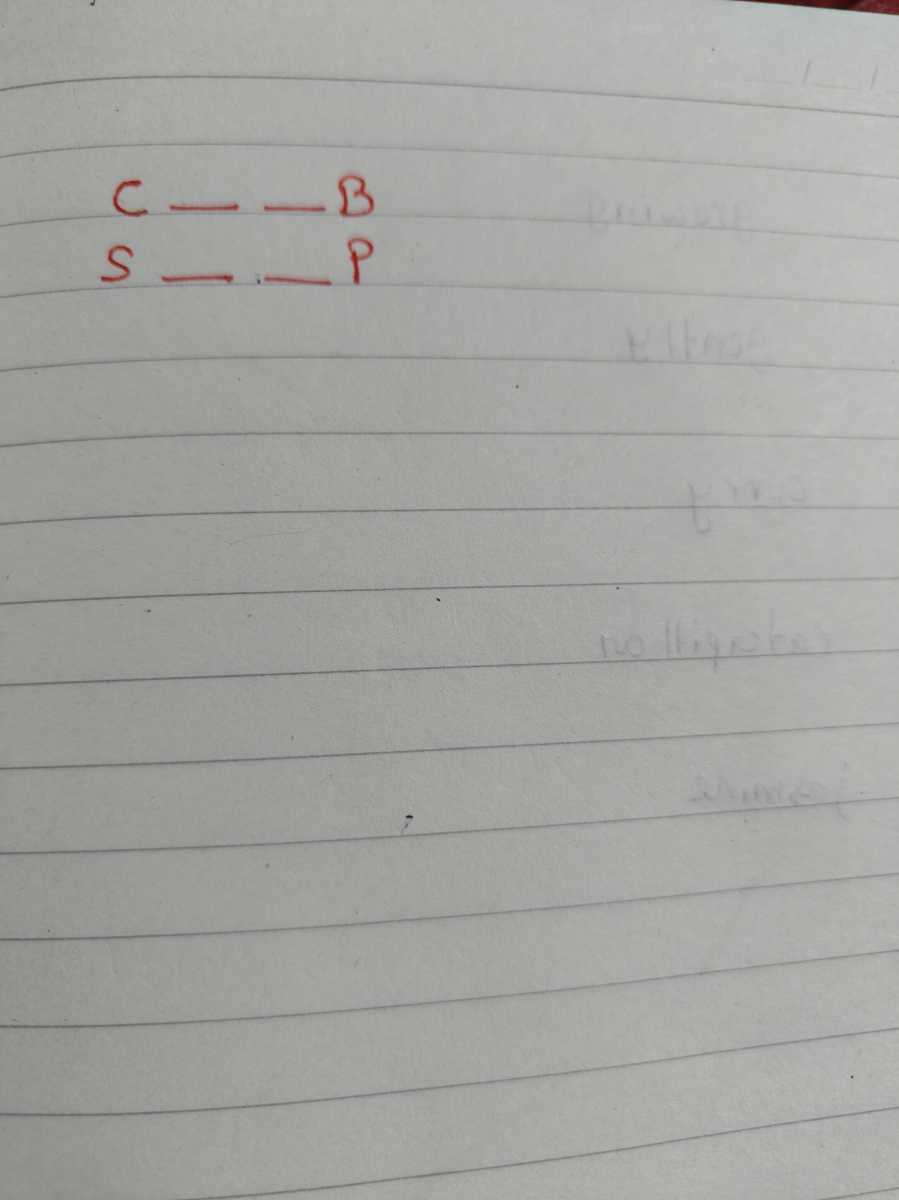 C _ _ B
S _ _ P